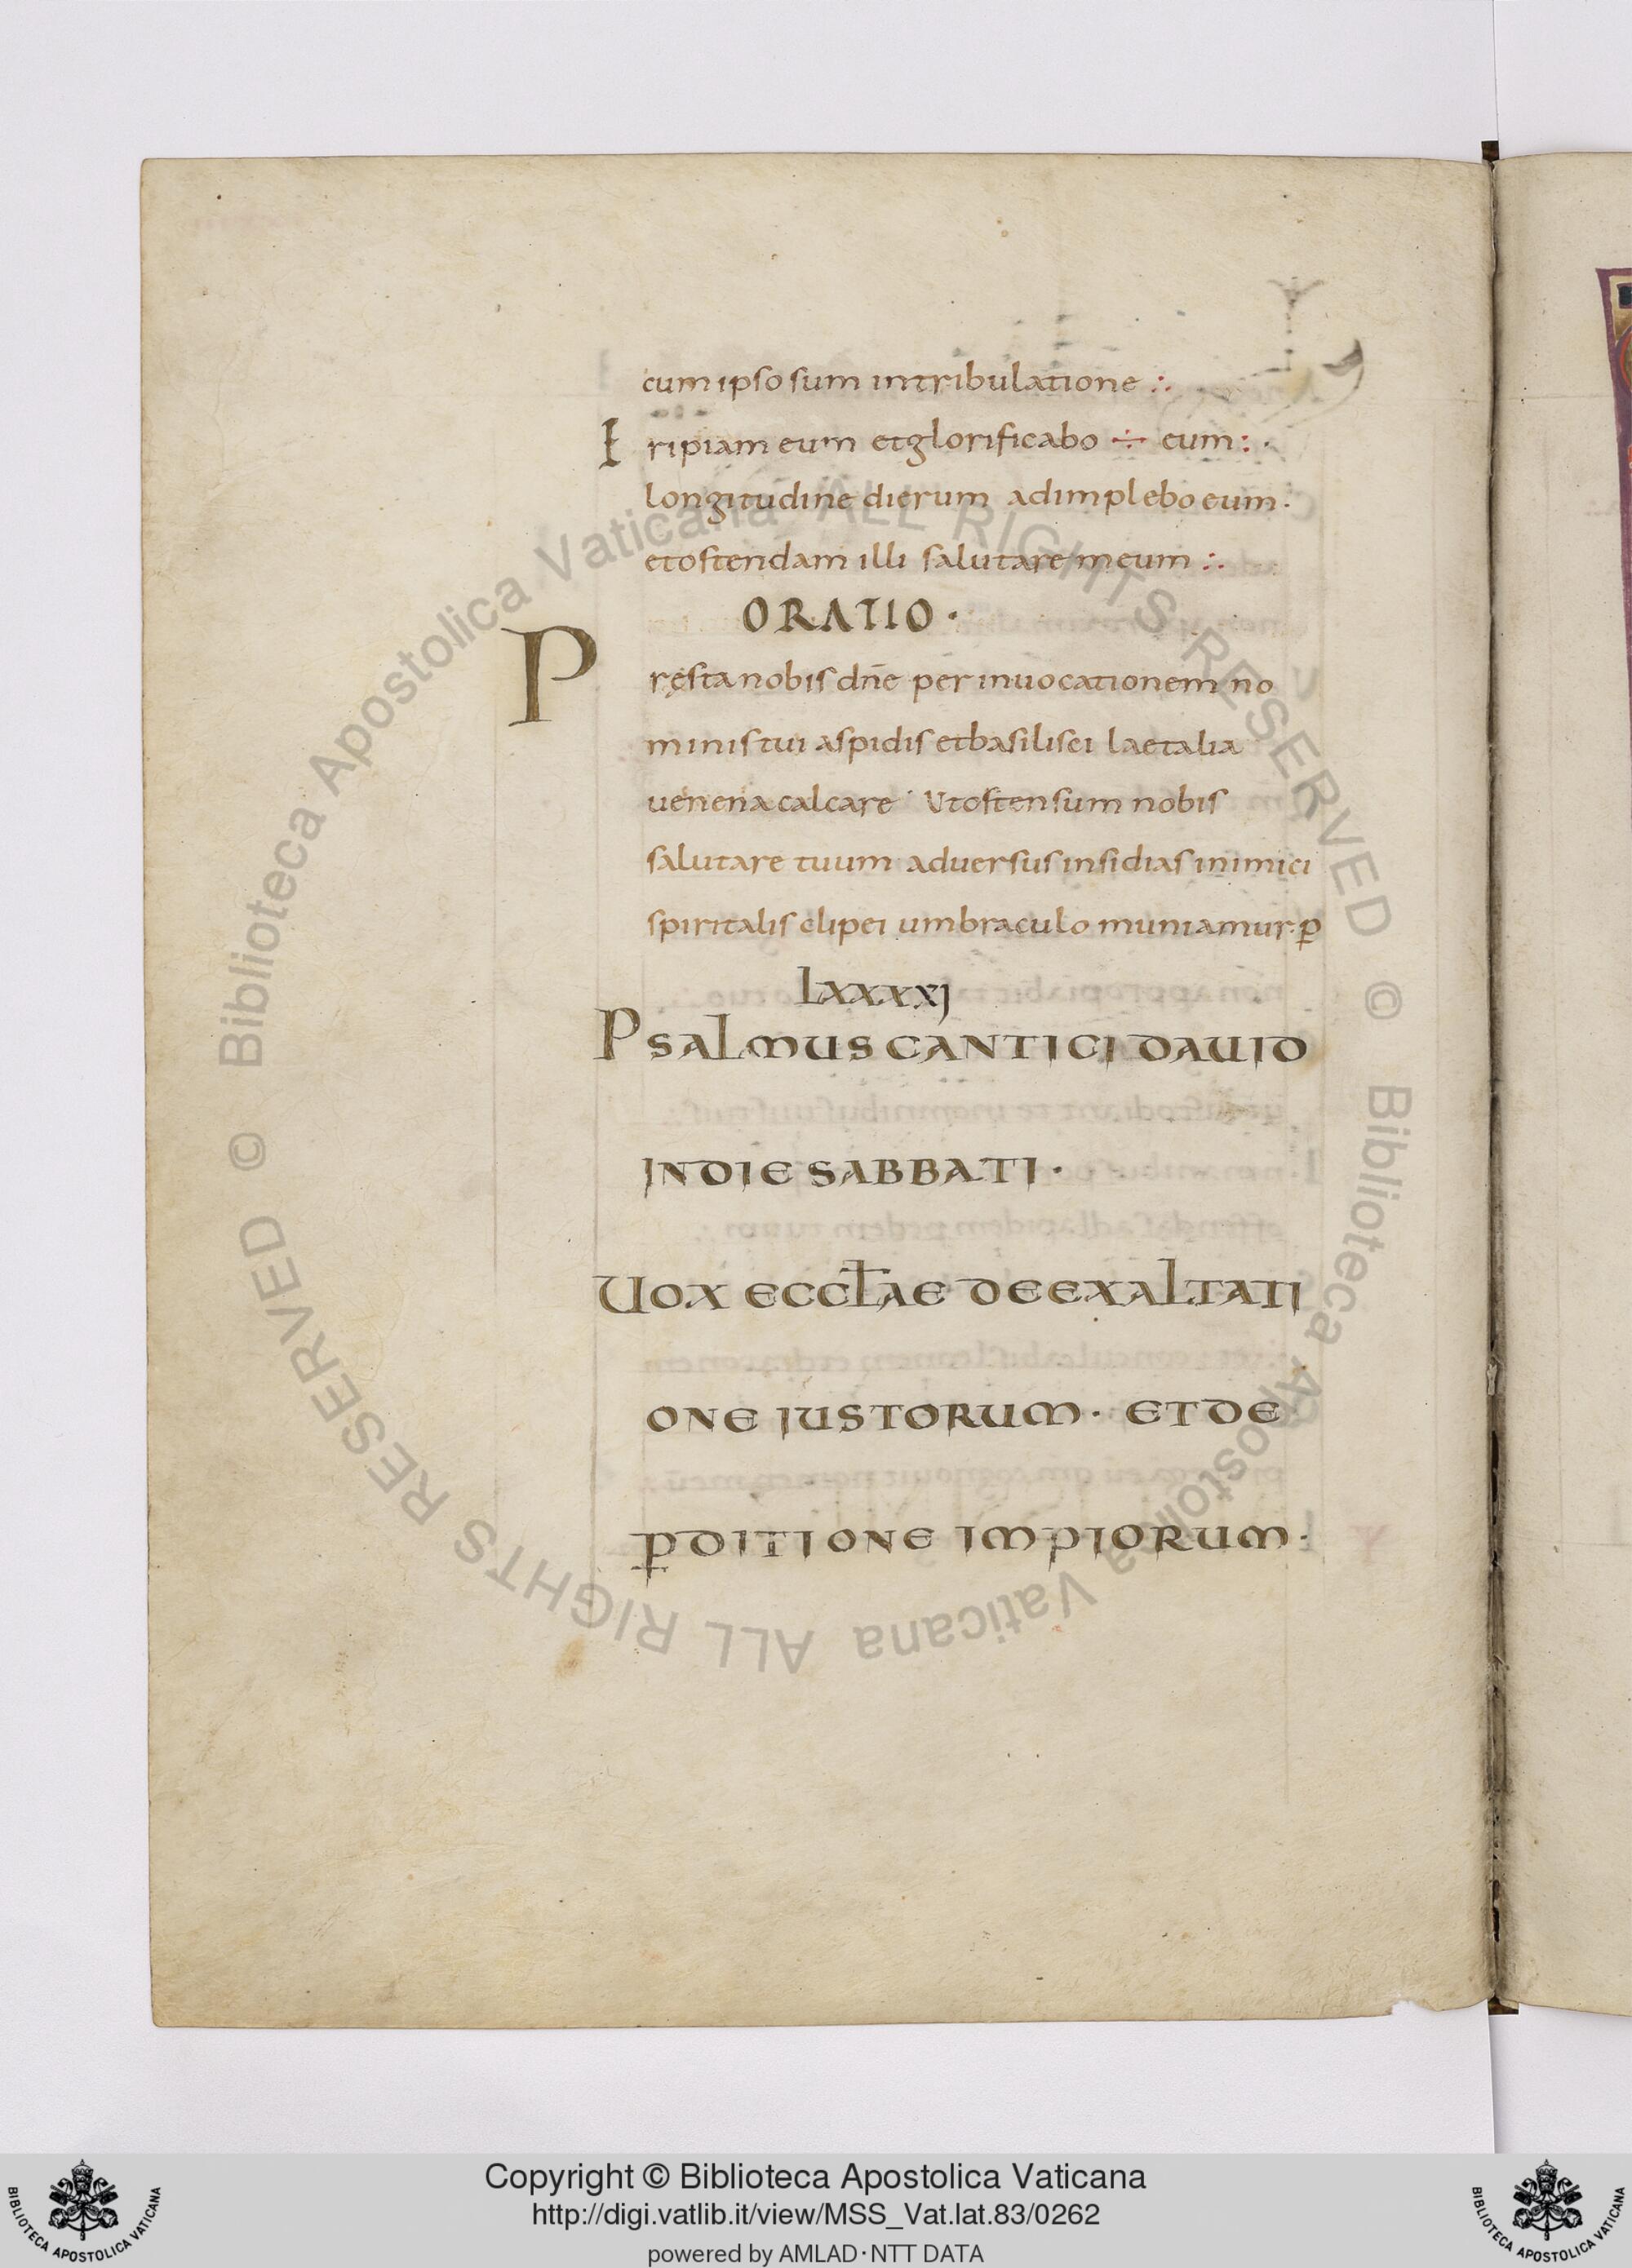 cum ipso sum intribulatione :.
Eripiam eum etglorificabo ÷ eum : .
longitudine dierum adimplebo eum.
etostendam illi salutare meum :.
ORATIO ·
Pręsta nobis dn̄e per inuocationem no
minis tui aspidis etbasilisci laetalia
uenena calcare · Vtostensum nobis
salutare tuum aduersus insidias inimici
spiritalis clipei umbraculo muniamur. ꝑ
LXXXXJ
PSALMUS CANTICI DAUID
INDIE SABBATI ·
UOX ECCŁAE DEEXALTATI
ONE JUSTORUM · ETDE
ꝐDITIONE IMPIORUM ·
© Biblioteca Apostolica Vaticana ALL RIGHTS RESERVED © Biblioteca Apostolica Vaticana ALL RIGHTS RESERVED
Copyright © Biblioteca Apostolica Vaticana
http://digi.vatlib.it/view/MSS_Vat.lat.83/0262
powered by AMLAD·NTT DATA
BIBLIOTECA APOSTOLICA VATICANA
BIBLIOTECA APOSTOLICA VATICANA